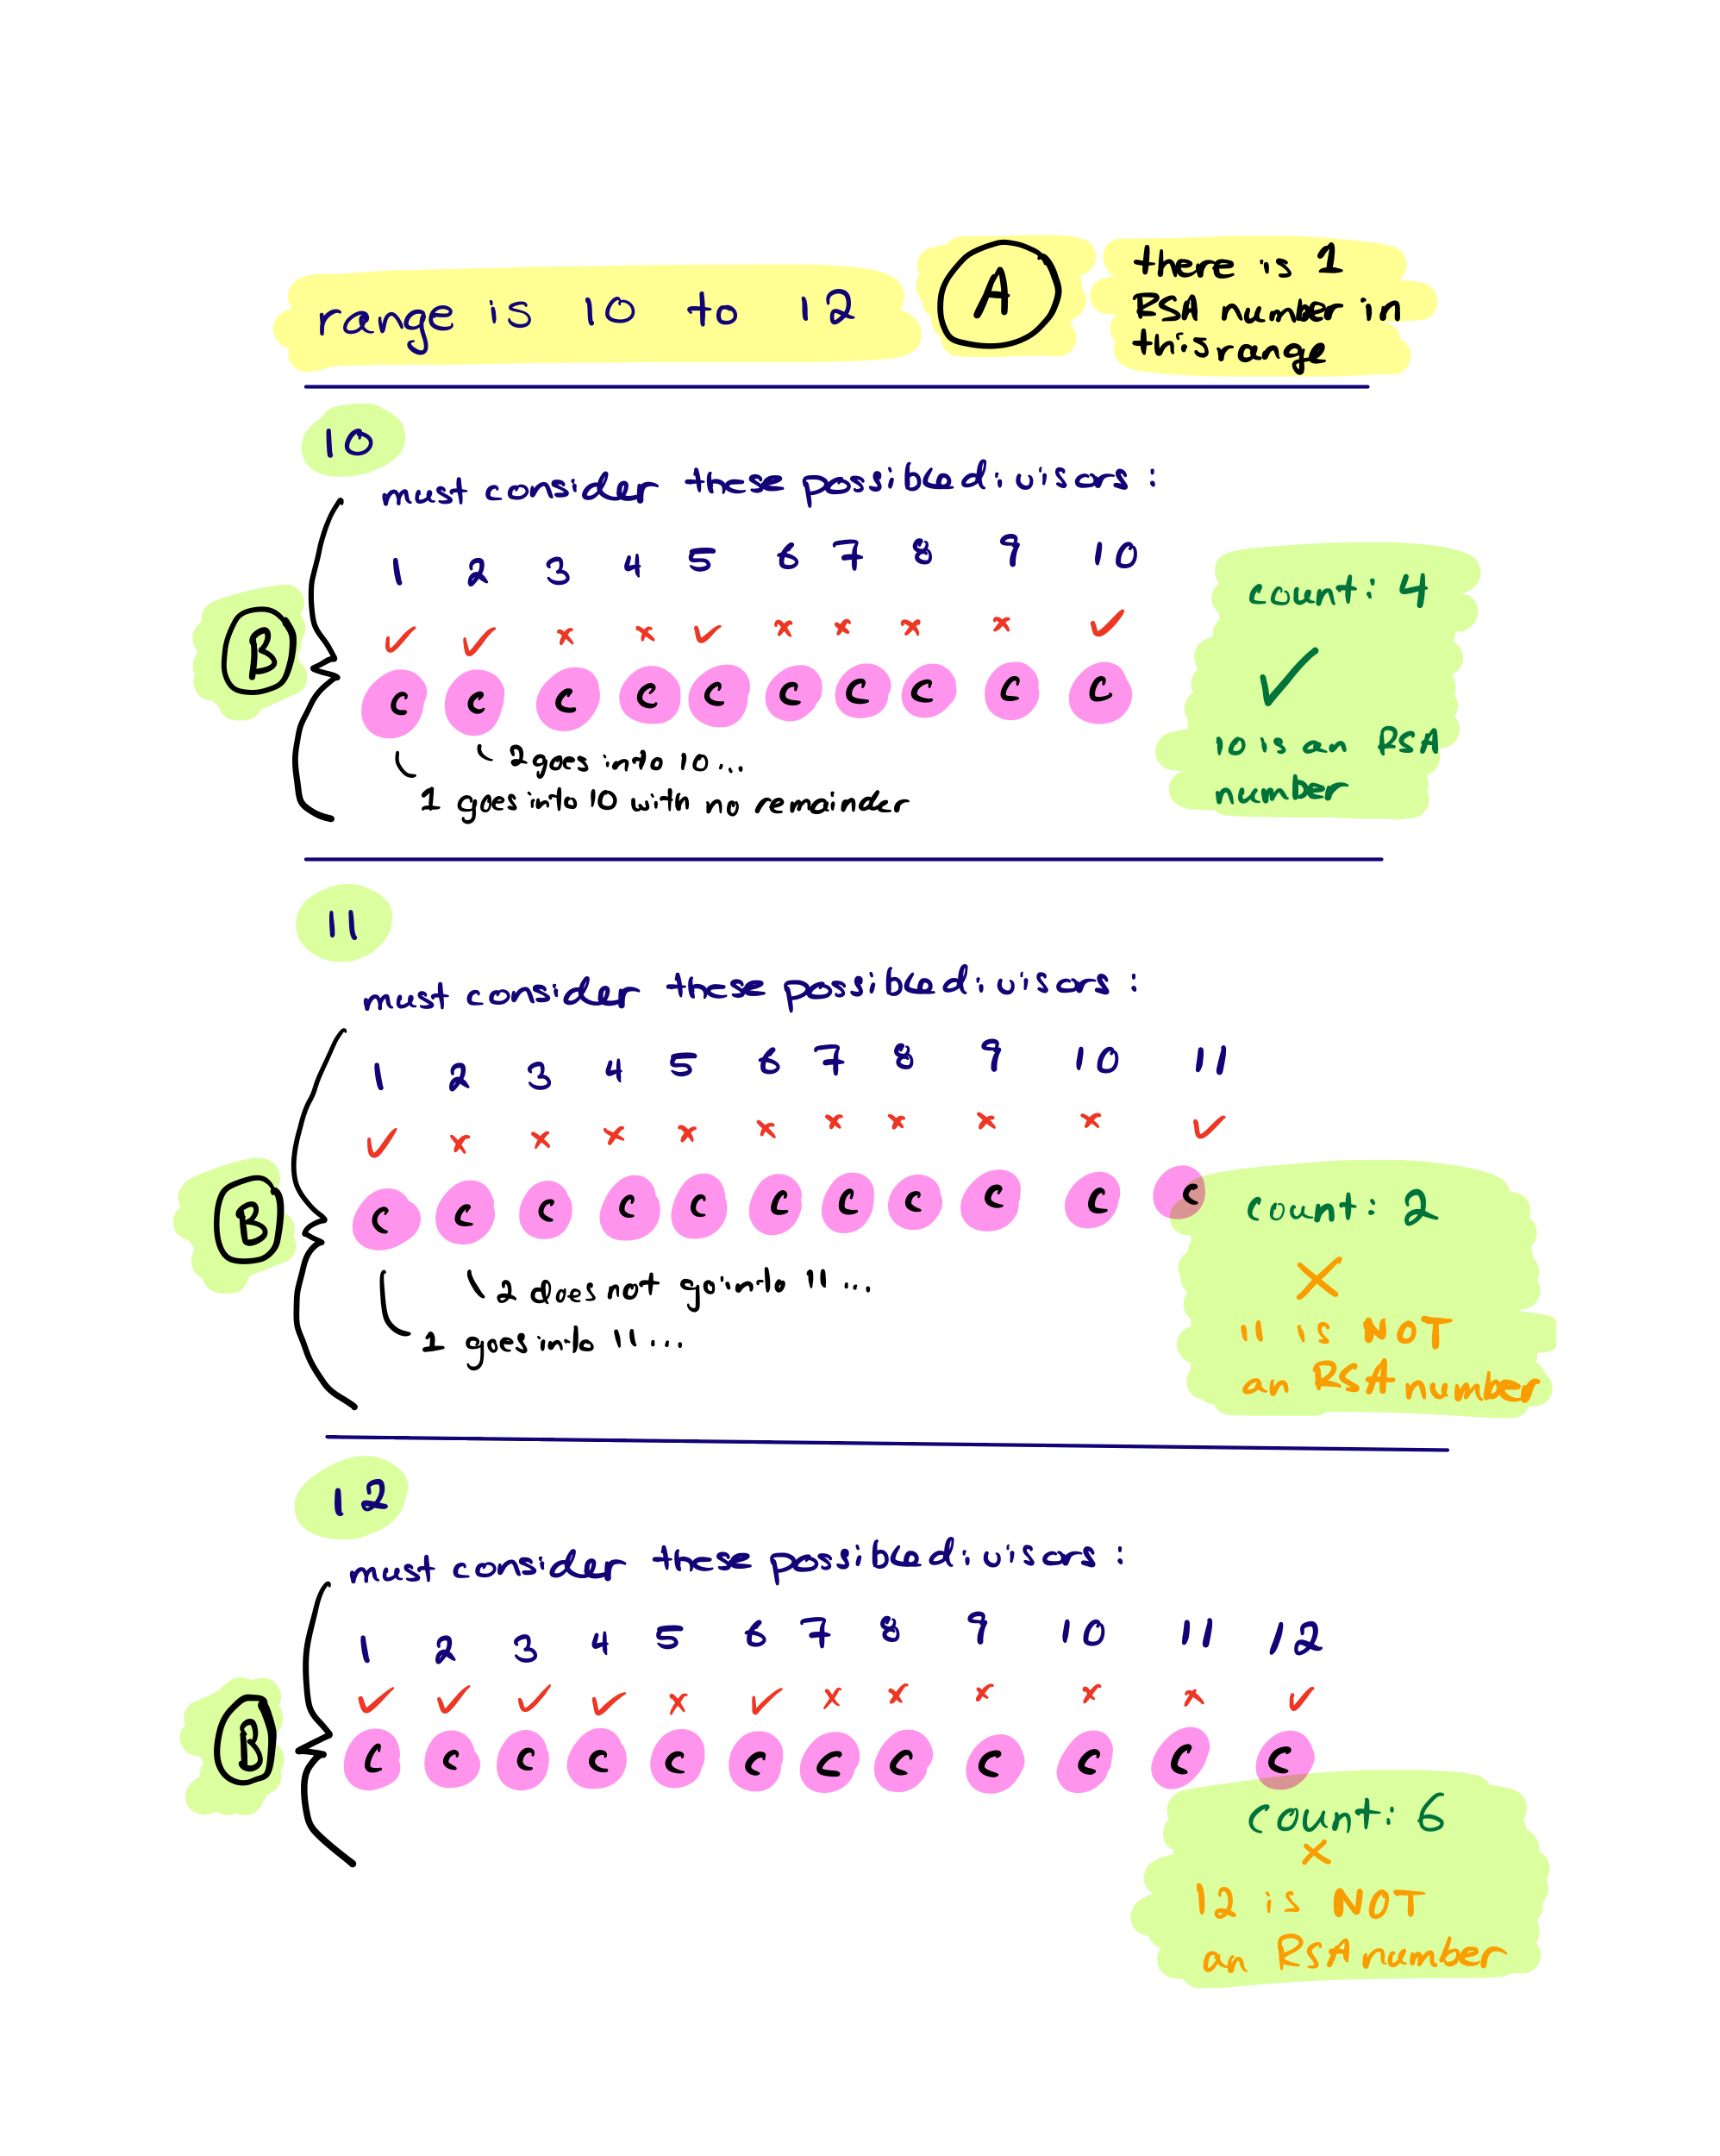 range is 10 to 12
A
there is 1
RSA number in
this range
10
must consider these possible divisors :
1 2 3 4 5 6 7 8 9 10
✓ ✓ x x ✓ x x x x ✓
B
C C C C C C C C C C
2 goes into 10 ...
1 goes into 10 with no remainder
count: 4
✓
10 is an RSA
number
11
must consider these possible divisors :
1 2 3 4 5 6 7 8 9 10 11
✓ x x x x x x x x x ✓
B
C C C C C C C C C C C
2 does not go into 11 ...
1 goes into 11 ...
count: 2
X
11 is NOT
an RSA number
12
must consider these possible divisors :
1 2 3 4 5 6 7 8 9 10 11 12
✓ ✓ ✓ ✓ x ✓ x x x x x ✓
B
C C C C C C C C C C C C
count: 6
x
12 is NOT
an RSA number